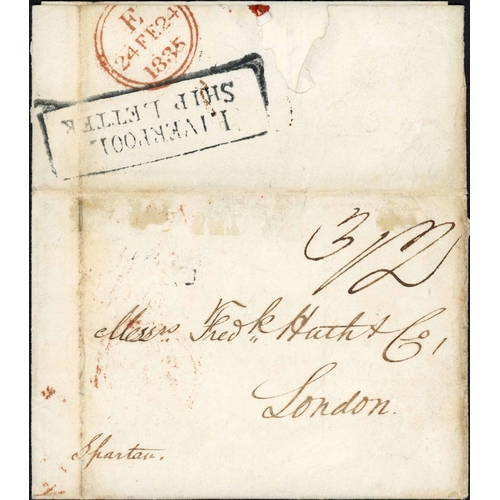 E
24 FE 24
1835
LIVERPOOL
SHIP LETTER
3/2
Messrs Fredk Huth & Co,
London.
Spartan.